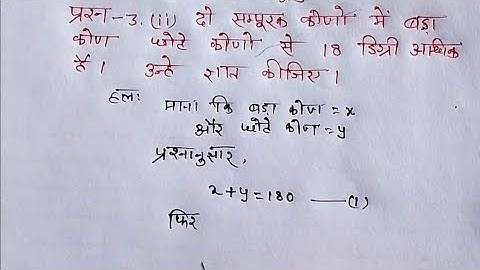 प्रश्न-3.(ii) दो सम्पूरक कोणों में बड़ा
कोण छोटे कोणों से 18 डिग्री अधिक
है। उन्हे ज्ञात कीजिए।
हल: माना कि बड़ा कोण = x
और छोटे कोण = y
प्रश्नानुसार,
x+y=180 —(1)
फिर